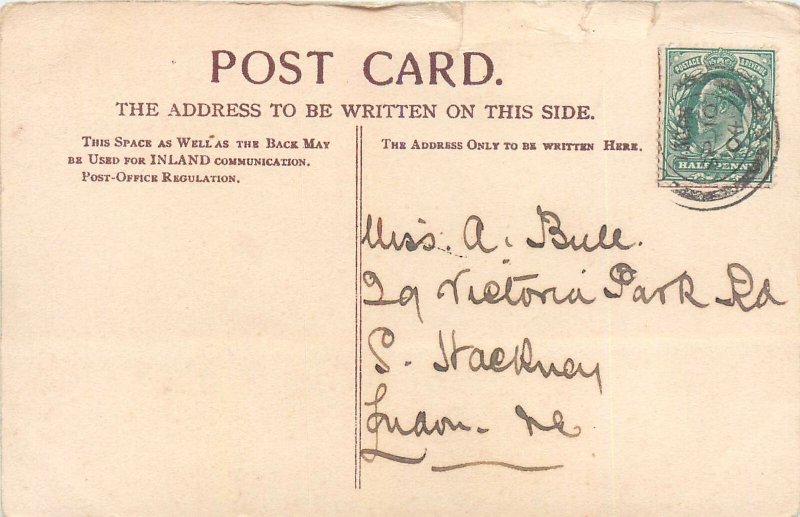 POST CARD.
THE ADDRESS TO BE WRITTEN ON THIS SIDE.
THIS SPACE AS WELL AS THE BACK MAY
BE USED FOR INLAND COMMUNICATION.
POST-OFFICE REGULATION.
THE ADDRESS ONLY TO BE WRITTEN HERE.
POSTAGE & REVENUE
HALFPENNY
Miss. A. Bull.
29 Victoria Park Rd
S. Hackney
London. NE